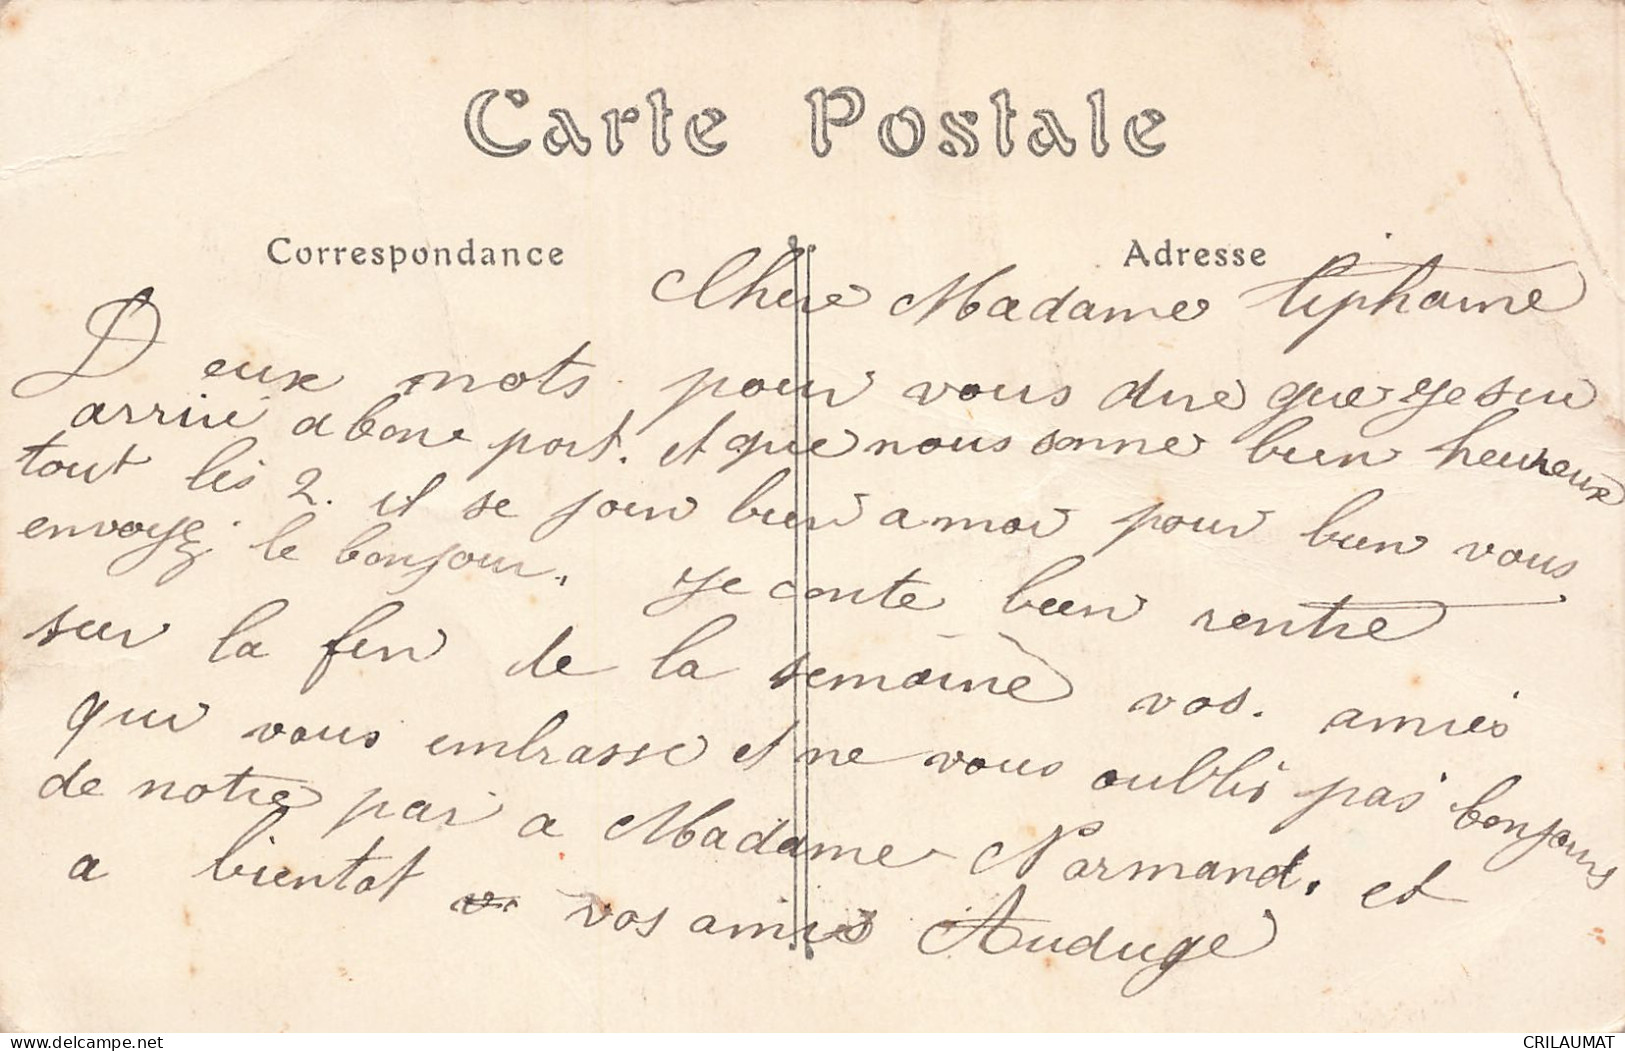 Carte Postale
Correspondance
Adresse
Chere Madame Tiphaine
Deux mots pour vous dire que je sui
arrivé a bone port. et que nous somme bien heureux
tout les 2. il se join bien a moi pour bien vous
envoyez le bonjour. je conte bien rentre
sur la fin de la semaine vos. amies
qui vous embrasse et ne vous oublis pas bonjours
de notre par a Madame Normand. et
a bientot vos amis Auduge
delcampe.net
CRILAUMAT